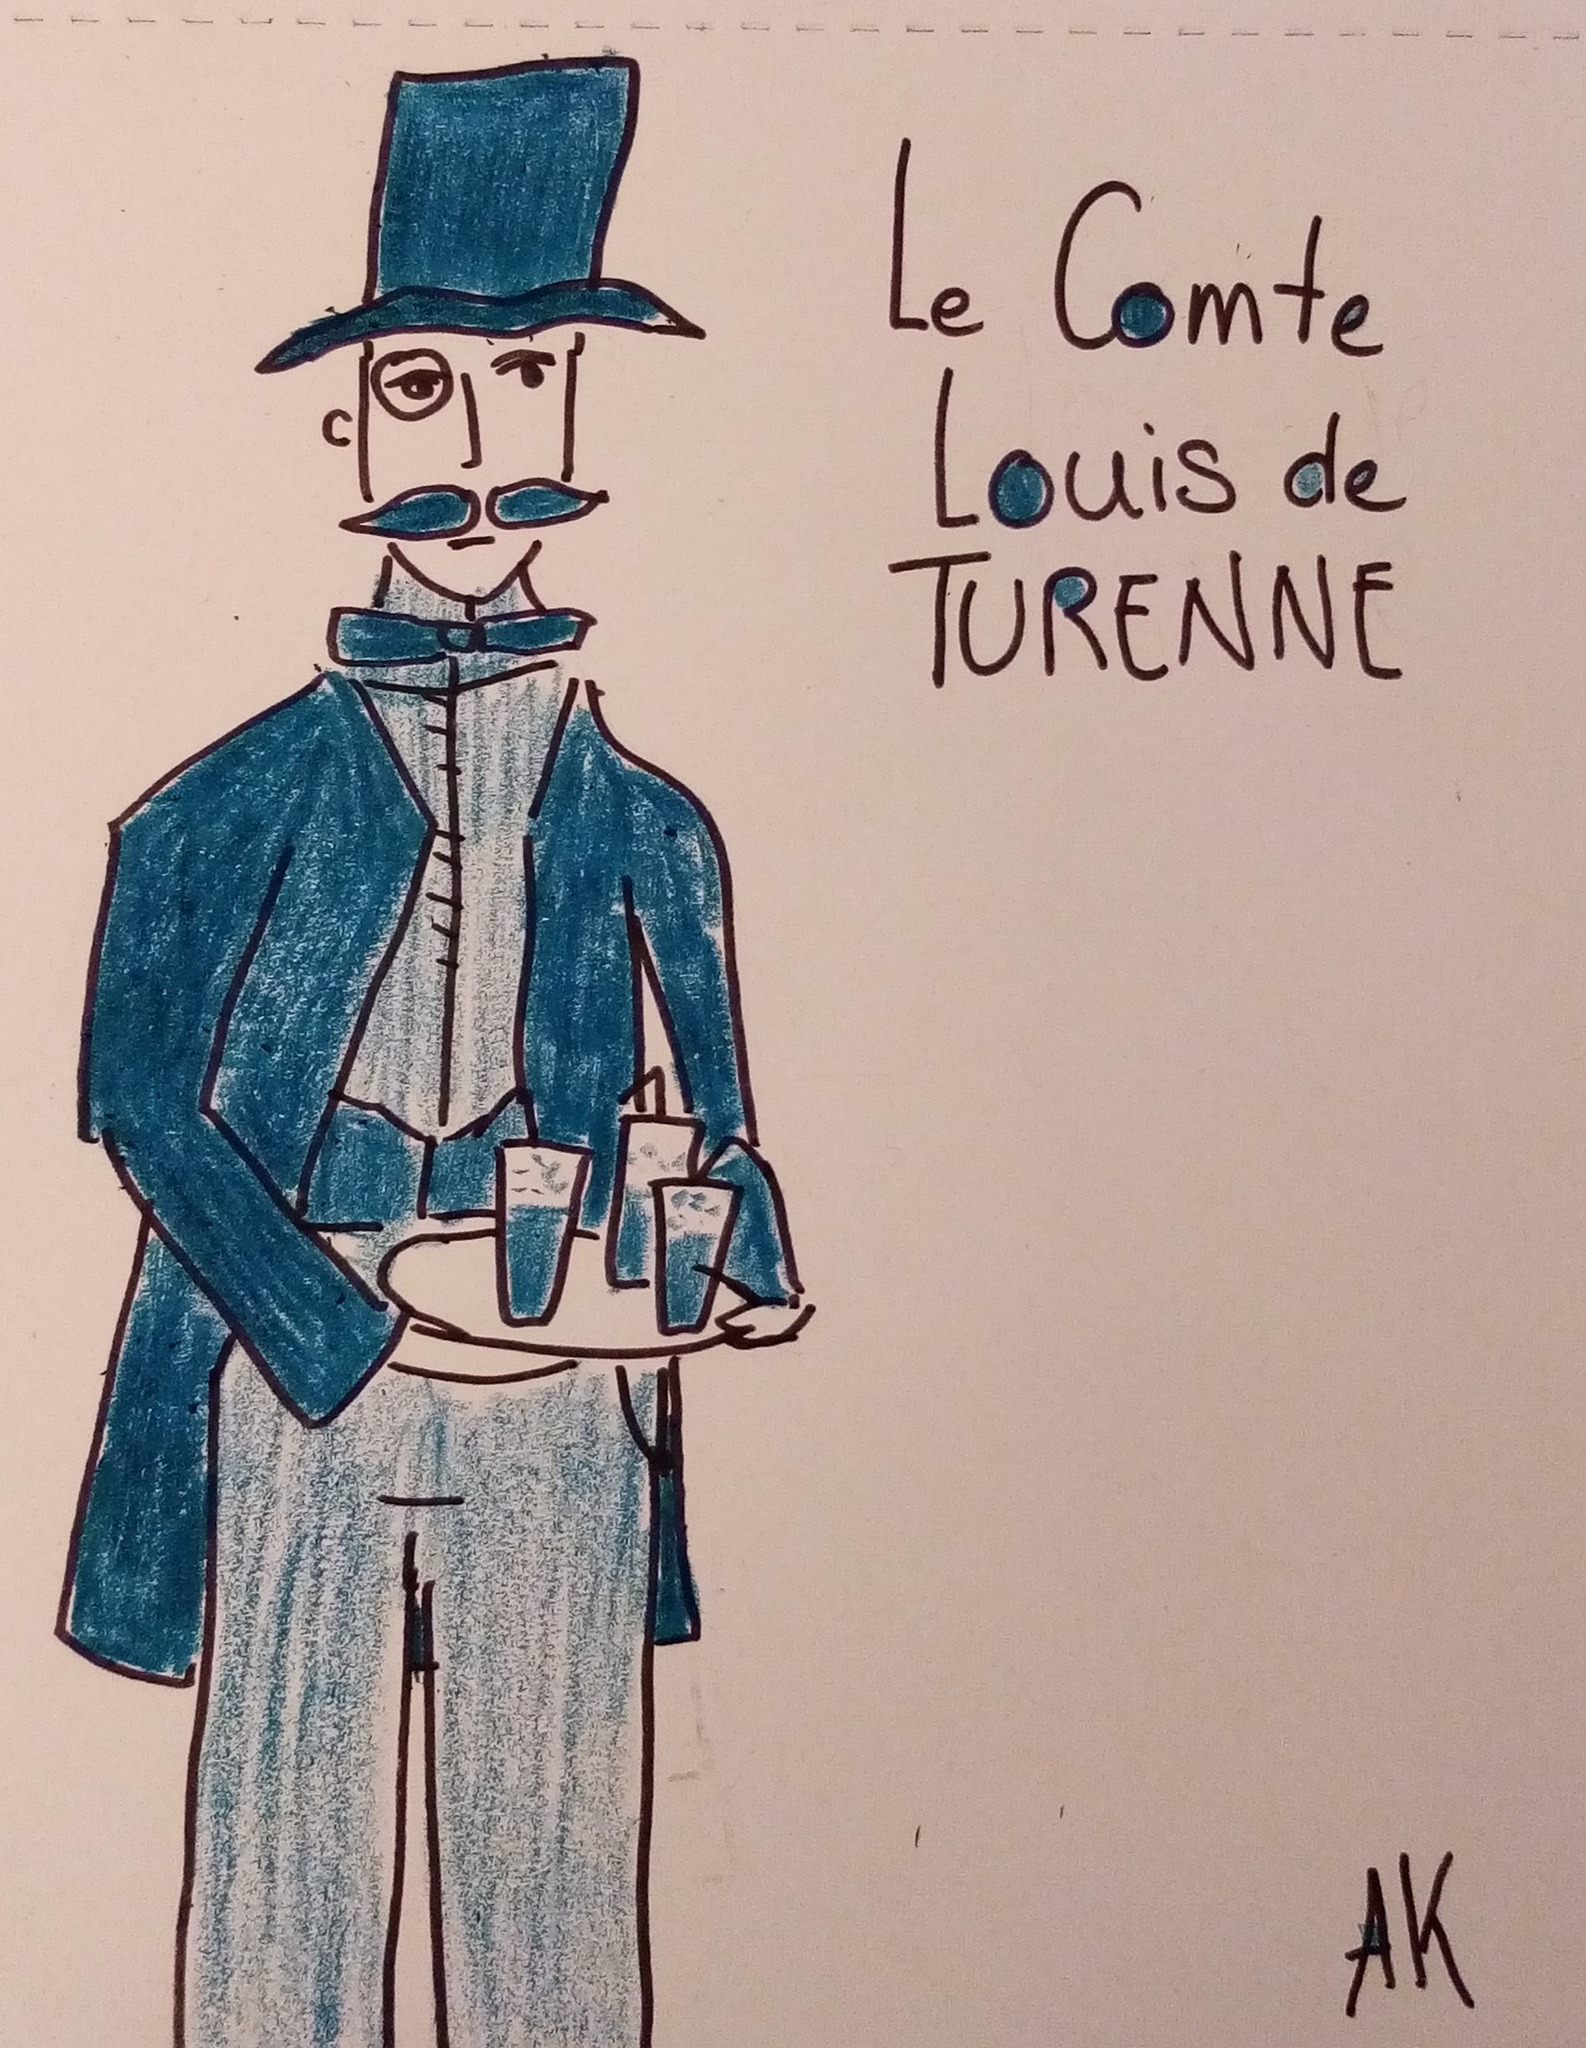 Le Comte
Louis de
TURENNE
AK